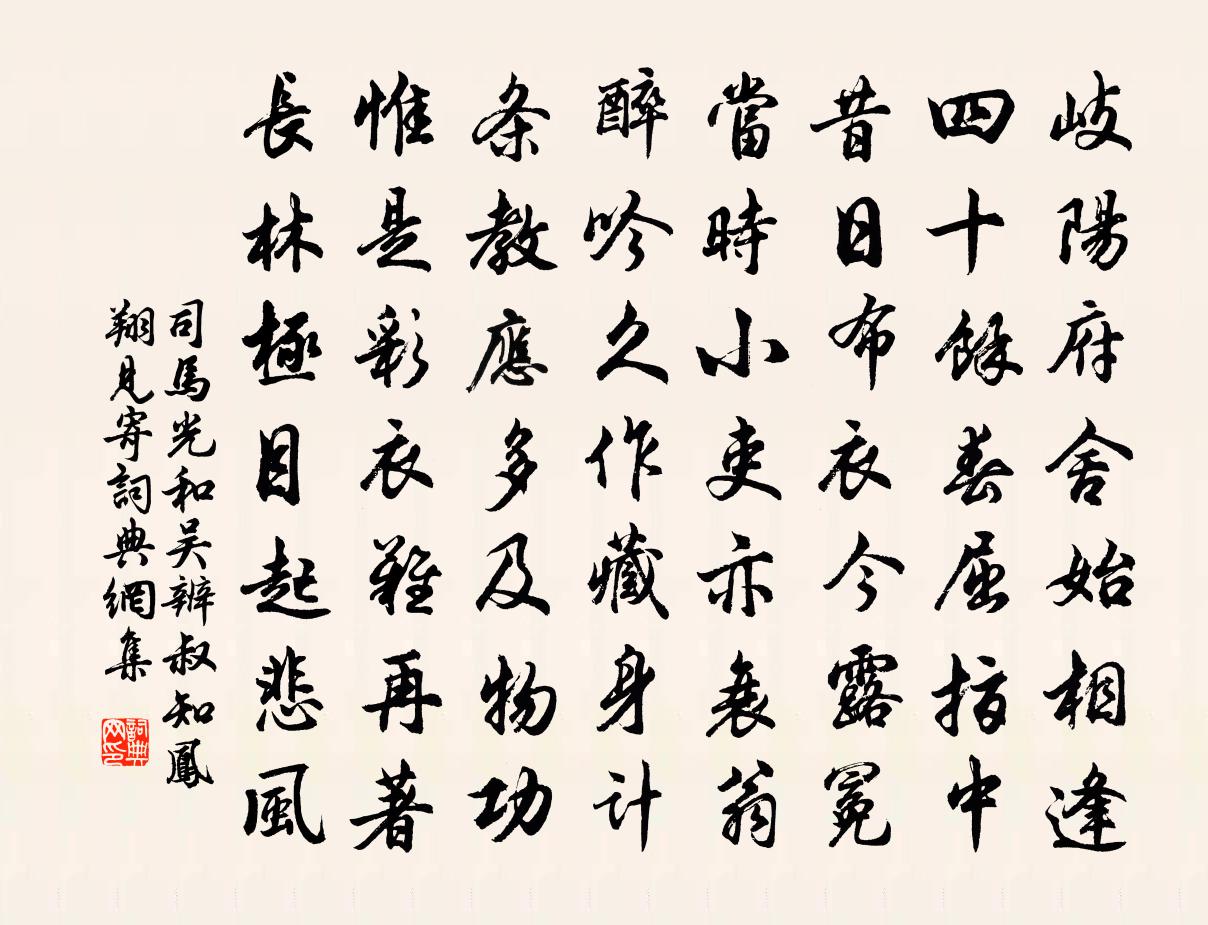 岐陽府舍始相逢
四十餘春屈指中
昔日布衣今露冕
當時小吏亦衰翁
醉吟久作藏身計
条教應多及物功
惟是彩衣難再著
長林極目起悲風
司馬光和吴辨叔知鳳
翔見寄詞典網集
詞典网印